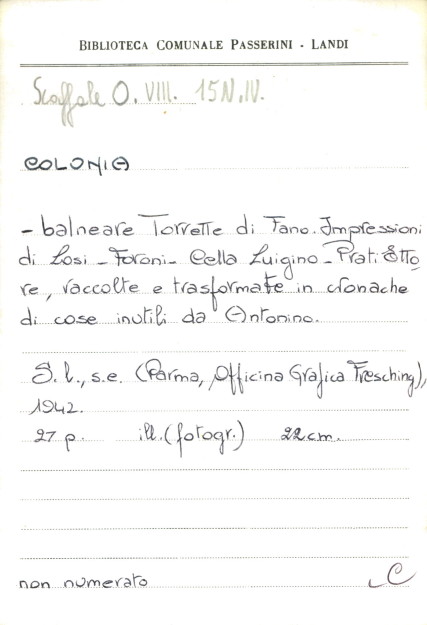 BIBLIOTECA COMUNALE PASSERINI - LANDI
Scaffale O. VIII. 15 N. IV.
COLONIA
- balneare Torrette di Fano. Impressioni
di Losi - Foroni - Cella Luigino - Prati Etto
re, raccolte e trasformate in cronache
di cose inutili da Antonino.
S. l., s.e. (Parma, Officina Grafica Fresching),
1942.
27 p. ill. (fotogr.) 22 cm.
non numerato C